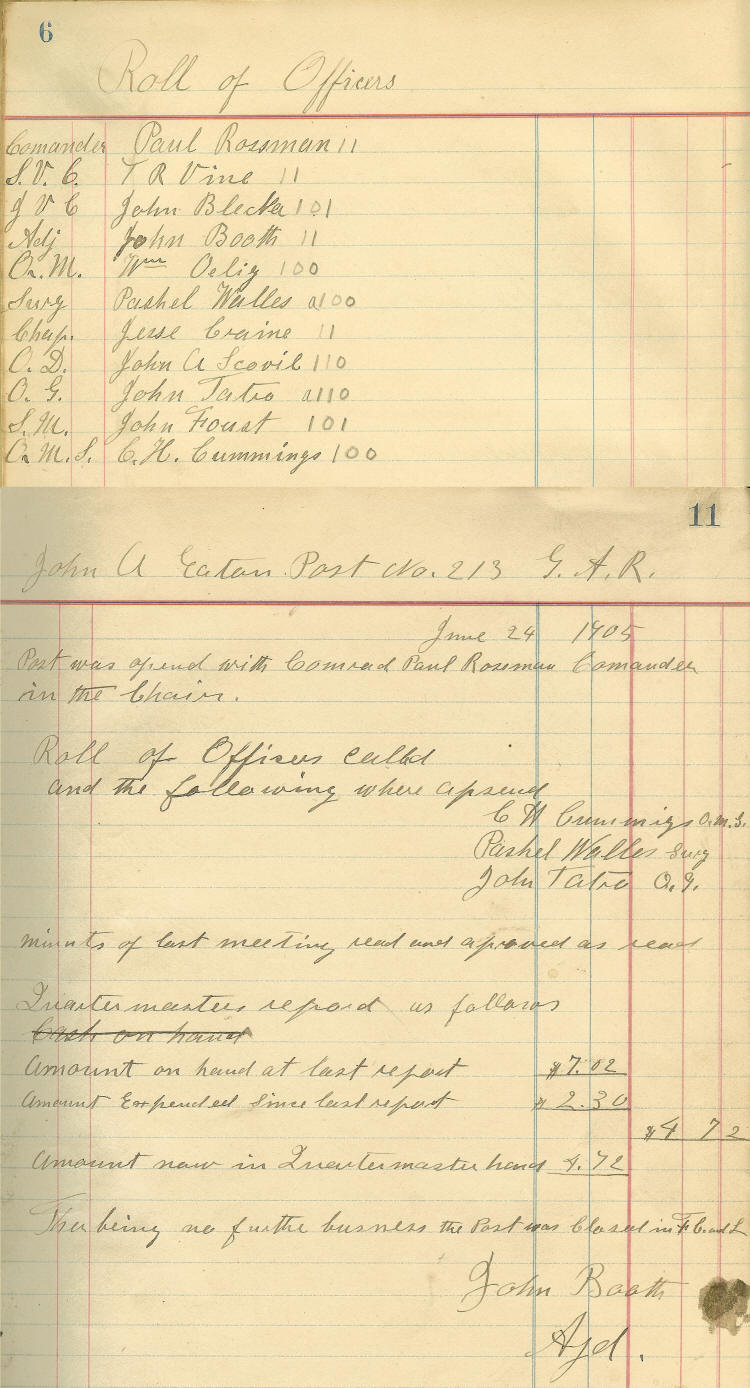 6
Roll of Officers
Comander Paul Rossman 11
S. V. C. T R Vine 11
J V C John Blecka 101
Adj John Booth 11
Q. M. Wm Oelig 100
Surg Pashel Walles a100
Chap. Jesse Craine 11
O. D. John A Scovil 110
O. G. John Tatro a110
S. M. John Foust 101
Q. M. S. C. H. Cummings 100
11
John A Eaton Post No. 213 G. A. R.
June 24 1905
Post was opend with Comrad Paul Rossman Comander
in the Chair.
Roll of Officers calld
and the following where apsend
C H Cummigs Q.M.S.
Pashel Walles Surg
John Tatro O.G.
minuts of last meeting read and aproved as read
Quartermasters repord as follows
Cash on hand
Amount on hand at last report $7.02
Amount Expended Since last report $2.30
$4 72
Amount now in Quartermaster hand 4.72
Ther being no furthe busness the Post was Closed in F C and L
John Booth
Ajd.